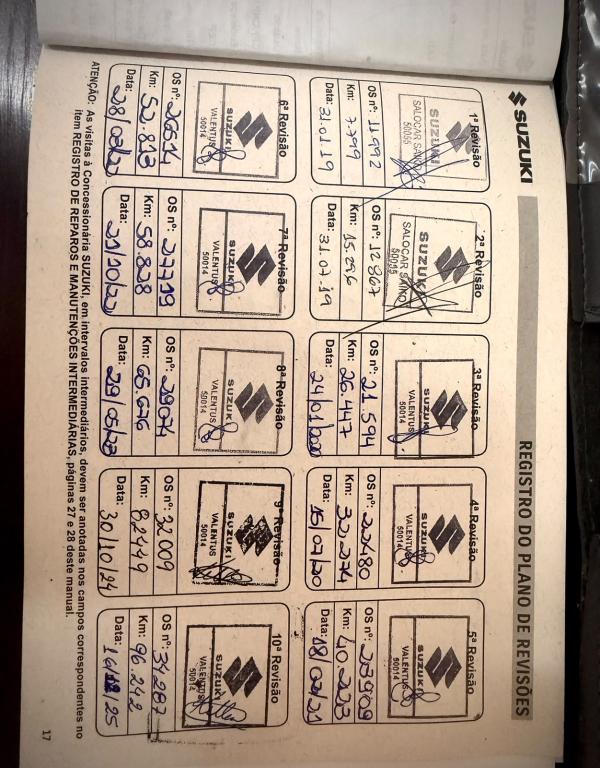 SUZUKI
REGISTRO DO PLANO DE REVISÕES
1ª Revisão
SUZUKI
SALOCAR SAIKO
50055
OS nº: 11.992
Km: 7.799
Data: 31.01.19
2ª Revisão
SUZUKI
SALOCAR SAIKO
50055
OS nº: 12.867
Km: 15.296
Data: 31.07.19
3ª Revisão
SUZUKI
VALENTUS
50014
OS nº: 21.594
Km: 26.447
Data: 24/01/2020
4ª Revisão
SUZUKI
VALENTUS
50014
OS nº: 22480
Km: 32.274
Data: 15/07/20
5ª Revisão
SUZUKI
VALENTUS
50014
OS nº: 23909
Km: 40.203
Data: 18/02/21
6ª Revisão
SUZUKI
VALENTUS
50014
OS nº: 26514
Km: 52.813
Data: 28/03/22
7ª Revisão
SUZUKI
VALENTUS
50014
OS nº: 27719
Km: 58.828
Data: 21/10/22
8ª Revisão
SUZUKI
VALENTUS
50014
OS nº: 29074
Km: 65.676
Data: 29/05/23
9ª Revisão
SUZUKI
VALENTUS
50014
OS nº: 32009
Km: 82449
Data: 30/10/24
10ª Revisão
SUZUKI
VALENTUS
50014
OS nº: 34287
Km: 96.242
Data: 25
ATENÇÃO: As visitas à Concessionária SUZUKI, em intervalos intermediários, devem ser anotadas nos campos correspondentes no
item REGISTRO DE REPAROS E MANUTENÇÕES INTERMEDIÁRIAS, páginas 27 e 28 deste manual.
17